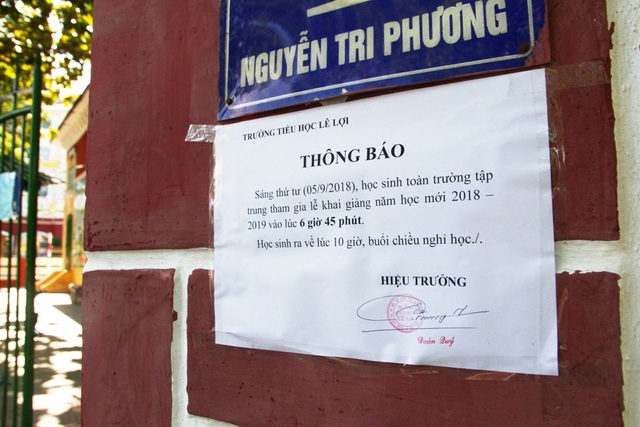 NGUYỄN TRI PHƯƠNG
TRƯỜNG TIỂU HỌC LÊ LỢI
THÔNG BÁO
Sáng thứ tư (05/9/2018), học sinh toàn trường tập
trung tham gia lễ khai giảng năm học mới 2018 –
2019 vào lúc 6 giờ 45 phút.
Học sinh ra về lúc 10 giờ, buổi chiều nghỉ học./.
HIỆU TRƯỞNG
Đoàn Quý